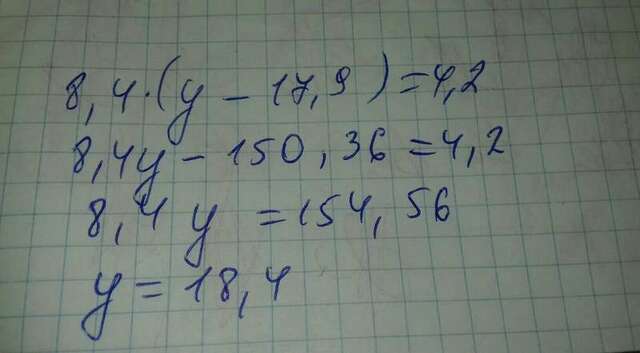 8,4·(y − 17,9) = 4,2
8,4y − 150,36 = 4,2
8,4y = 154,56
y = 18,4